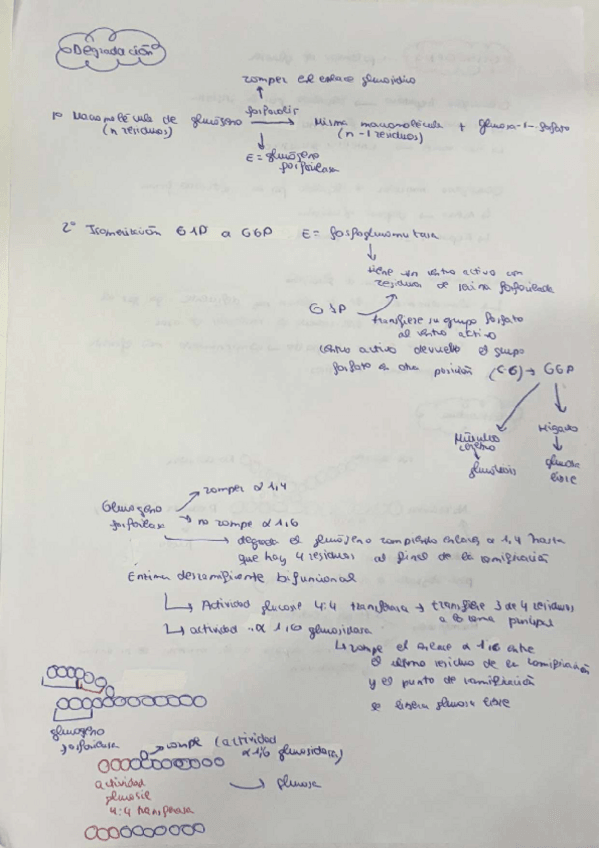 Degradación
romper el enlace glucosídico
1º Macromolécula de glucógeno fosforolisis Misma macromolécula + glucosa-1-fosfato
(n residuos) (n-1 residuos)
E = glucógeno
fosforilasa
2º Isomerización G1P a G6P E = fosfoglucomutasa
tiene un centro activo con
residuos de serina fosforilada
G1P
transfiere su grupo fosfato
al centro activo
centro activo devuelve el grupo
fosfato en otra posición (C-6) → G6P
Músculo
cerebro
Hígado
glucólisis
glucosa
libre
romper α 1,4
Glucógeno
fosforilasa
no rompe α 1,6
degrada el glucógeno rompiendo enlaces α 1,4 hasta
que hay 4 residuos al final de la ramificación
Enzima desramificante bifuncional
Actividad glucosil 4:4 transferasa → transfiere 3 de 4 residuos
a la rama principal
actividad α 1,6 glucosidasa
rompe el enlace α 1,6 entre
el último residuo de la ramificación
y el punto de ramificación
se libera glucosa libre
glucógeno
fosforilasa
rompe (actividad
α 1,6 glucosidasa)
actividad
glucosil
4:4 transferasa
glucosa